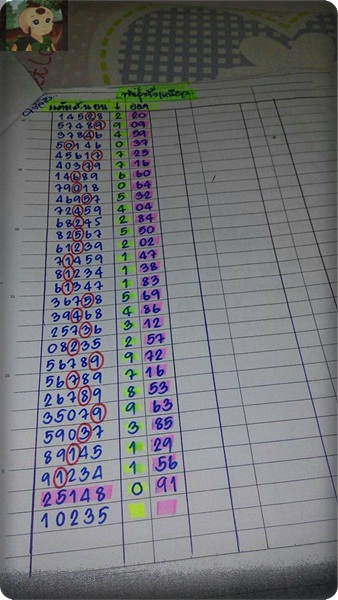 แต้มล้นบน ↓ ออก
14528 2 20
57489 9 09
37846 4 59
50146 0 37
45617 7 25
40379 7 16
14689 6 60
79018 0 64
46957 5 32
72459 4 04
68245 2 84
82567 5 50
61239 2 02
71459 1 47
81234 1 38
61347 1 83
36758 5 69
39468 4 86
25736 3 12
08235 2 57
56789 9 72
56789 7 16
26789 8 53
35079 9 63
59037 3 85
89145 1 29
91234 1 56
25148 0 91
10235